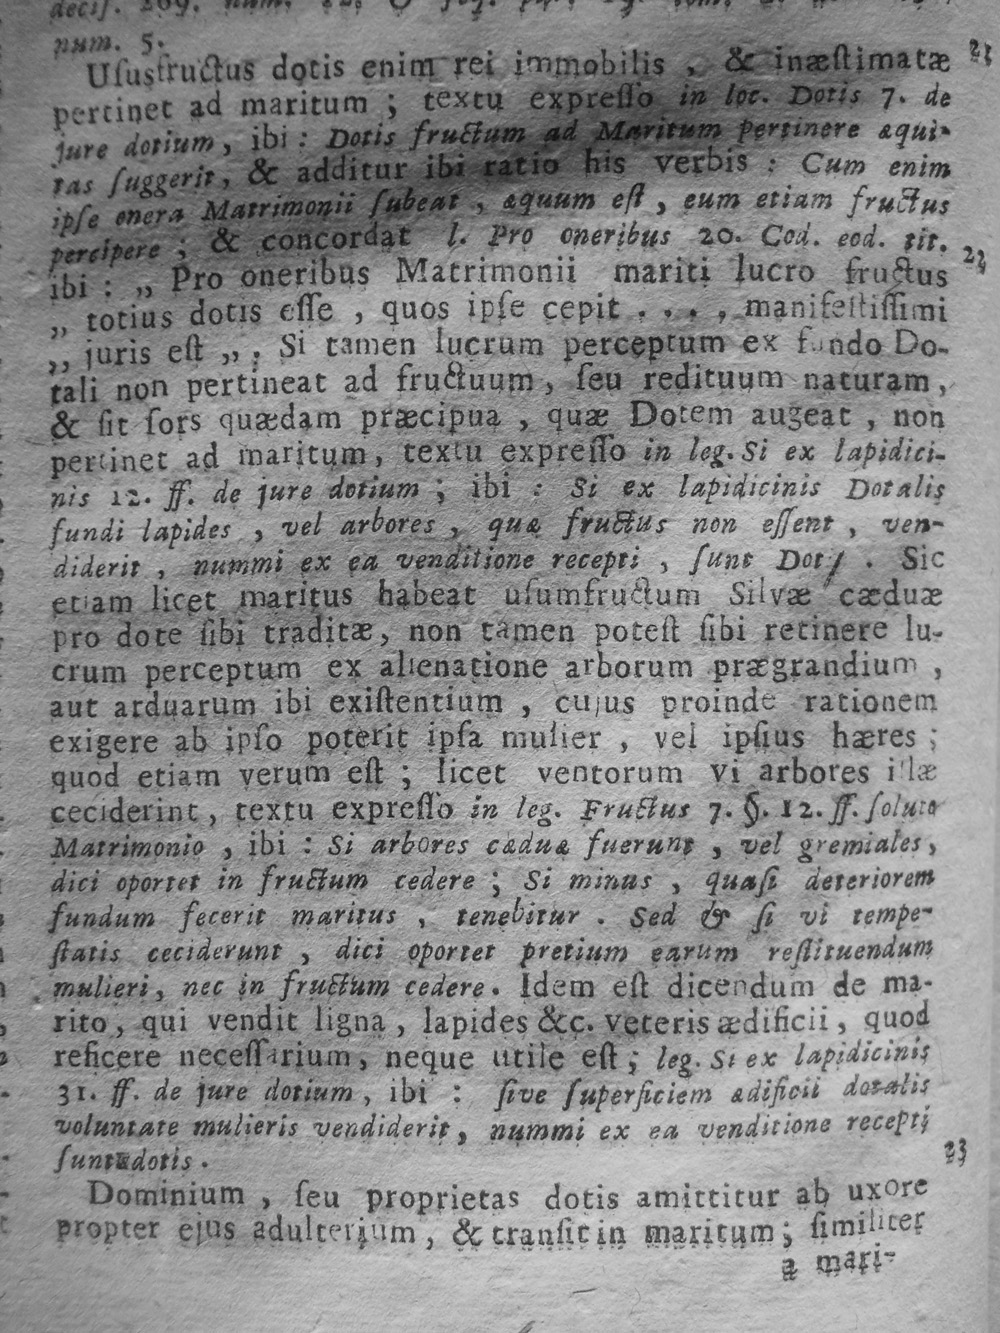 num. 5.
Uſusfructus dotis enim rei immobilis , & inæſtimatæ 21
pertinet ad maritum ; textu expreſſo in loc. Dotis 7. de
jure dotium, ibi : Dotis fructum ad Maritum pertinere æqui-
tas ſuggerit, & additur ibi ratio his verbis : Cum enim
ipſe onera Matrimonii ſubeat , æquum eſt , eum etiam fructus
percipere ; & concordat l. Pro oneribus 20. Cod. eod. tit. 22
ibi : „ Pro oneribus Matrimonii mariti lucro fructus
„ totius dotis eſſe , quos ipſe cepit . . . , manifeſtiſſimi
„ juris eſt „ . Si tamen lucrum perceptum ex fundo Do-
tali non pertineat ad fructuum, ſeu redituum naturam,
& ſit ſors quædam præcipua , quæ Dotem augeat , non
pertinet ad maritum, textu expreſſo in leg. Si ex lapidici-
nis 12. ff. de jure dotium ; ibi : Si ex lapidicinis Dotalis
fundi lapides , vel arbores , quæ fructus non eſſent , ven-
diderit , nummi ex ea venditione recepti , ſunt Dotis . Sic
etiam licet maritus habeat uſumfructum Silvæ cæduæ
pro dote ſibi traditæ, non tamen poteſt ſibi retinere lu-
crum perceptum ex alienatione arborum prægrandium ,
aut arduarum ibi exiſtentium , cujus proinde rationem
exigere ab ipſo poterit ipſa mulier , vel ipſius hæres ;
quod etiam verum eſt ; licet ventorum vi arbores illæ
ceciderint, textu expreſſo in leg. Fructus 7. §. 12. ff. ſoluto
Matrimonio , ibi : Si arbores cæduæ fuerunt , vel gremiales,
dici oportet in fructum cedere ; Si minus , quaſi deteriorem
fundum fecerit maritus , tenebitur . Sed & ſi vi tempe-
ſtatis ceciderunt , dici oportet pretium earum reſtituendum
mulieri, nec in fructum cedere. Idem eſt dicendum de ma-
rito, qui vendit ligna, lapides &c. veteris ædificii, quod
reficere neceſſarium, neque utile eſt ; leg. Si ex lapidicinis
31. ff. de jure dotium, ibi : ſive ſuperficiem ædificii dotalis
voluntate mulieris vendiderit, nummi ex ea venditione recepti
ſunt dotis . 23
Dominium , ſeu proprietas dotis amittitur ab uxore
propter ejus adulterium, & tranſit in maritum; ſimiliter
a mari-